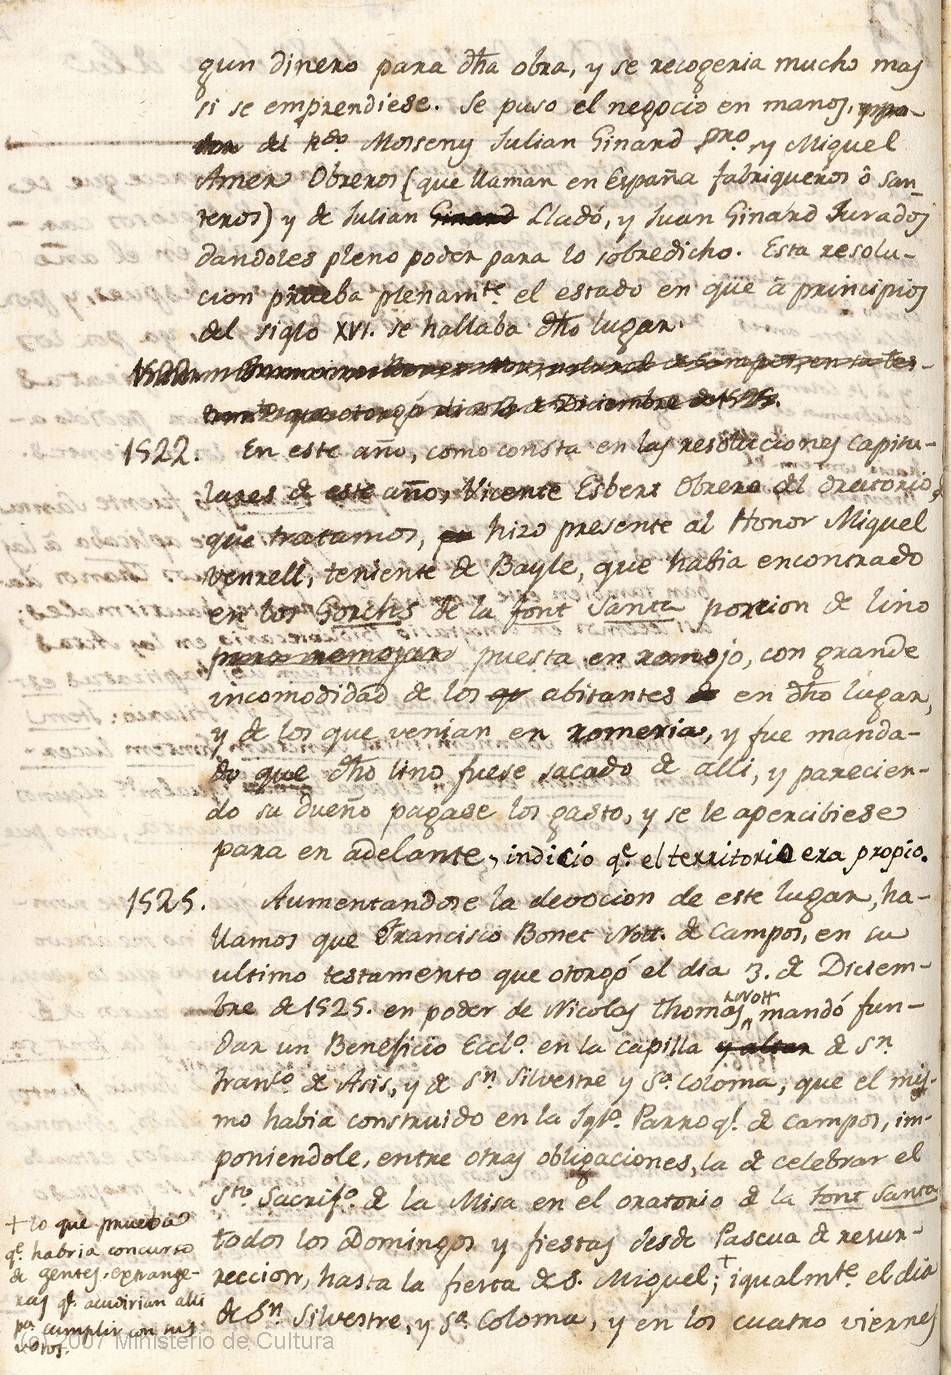 gun dinero para dha obra, y se recogeria mucho mas
si se emprendiese. Se puso el negocio en manos,
del Rdo. Mosseny Julian Ginard Pro. y Miguel
Amer Obreros (que llaman en España fabriqueros ô san-
teros) y de Julian Ginard Lladó, y Juan Ginard Jurados
dandoles pleno poder para lo sobredicho. Esta resolu-
cion prueba plenamte. el estado en que â principios
del siglo XVI. se hallaba dho lugar.
que otorgó dia 3 de Diciembre de 1525.
1522. En este año, como consta en las resoluciones capitu-
lares de este año, Vicente Esbert Obrero del oratorio
que tratamos, hizo presente al Honor Miguel
Venrell, teniente de Bayle, que habia encontrado
en los Gorchs de la font Santa porcion de lino
para remojar puesta en remojo, con grande
incomodidad de los abitantes en dho lugar,
y de los que venian en romeria, y fue manda-
do que dho lino fuese sacado de alli, y parecien-
do su dueño pagase los gasto, y se le apercibiese
para en adelante, indicio qe. el territorio era propio.
1525. Aumentandose la devocion de este lugar, ha-
llamos que Francisco Bonet Nott. de Campos, en su
ultimo testamento que otorgó el dia 3. de Diciem-
bre de 1525. en poder de Nicolas Thomas Nott. mandó fun-
dar un Beneficio Ecclo. en la capilla y altar de Sn.
Franco. de Asis, y de Sn. Silvestre y Sa. Coloma, que el mis-
mo habia construido en la Igla. Parroql. de Campos, im-
poniendole, entre otras obligaciones, la de celebrar el
Sto. Sacrifo. de la Misa en el oratorio de la font Santa
todos los Domingos y fiestas desde Pascua de resur-
reccion, hasta la fiesta de S. Miguel;+ igualmte. el dia
de Sn. Silvestre, y Sa. Coloma, y en los cuatro viernes
+ lo que prueba
qe. habria concurso
de gentes extrange-
ras qe. acudirian alli
pa. cumplir con sus
votos.
(c) 2007 Ministerio de Cultura